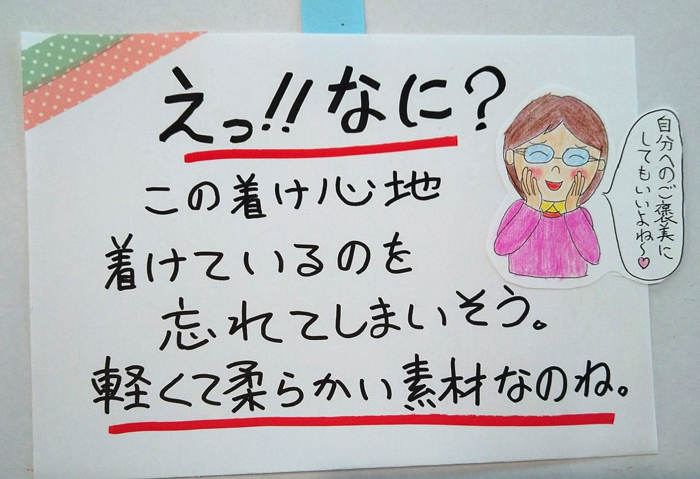 えっ!!なに?
この着け心地
着けているのを
忘れてしまいそう。
軽くて柔らかい素材なのね。
自分へのご褒美に
してもいいよね〜♡